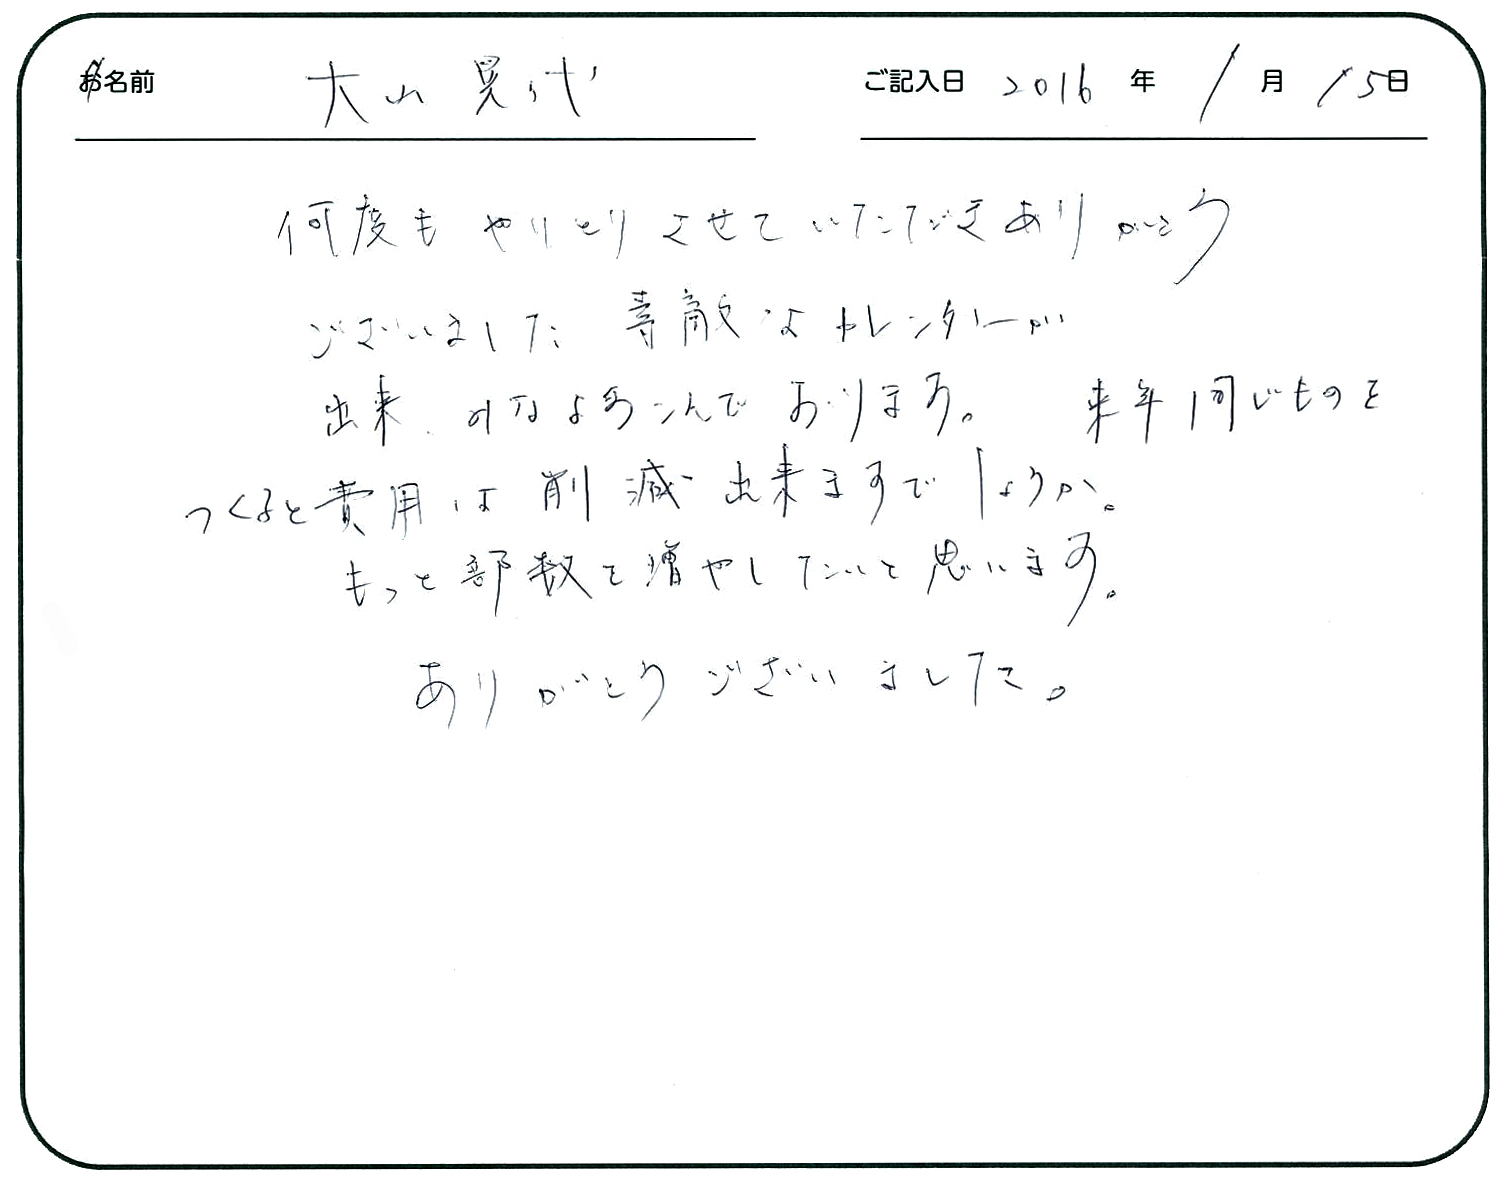 お名前 大山晃代 ご記入日 2016年1月15日
何度もやりとりさせていただきありがとう
ございました 素敵なカレンダーが
出来、みなよろこんでおります。 来年同じものを
つくると費用は削減出来ますでしょうか。
もっと部数を増やしたいと思います。
ありがとうございました。